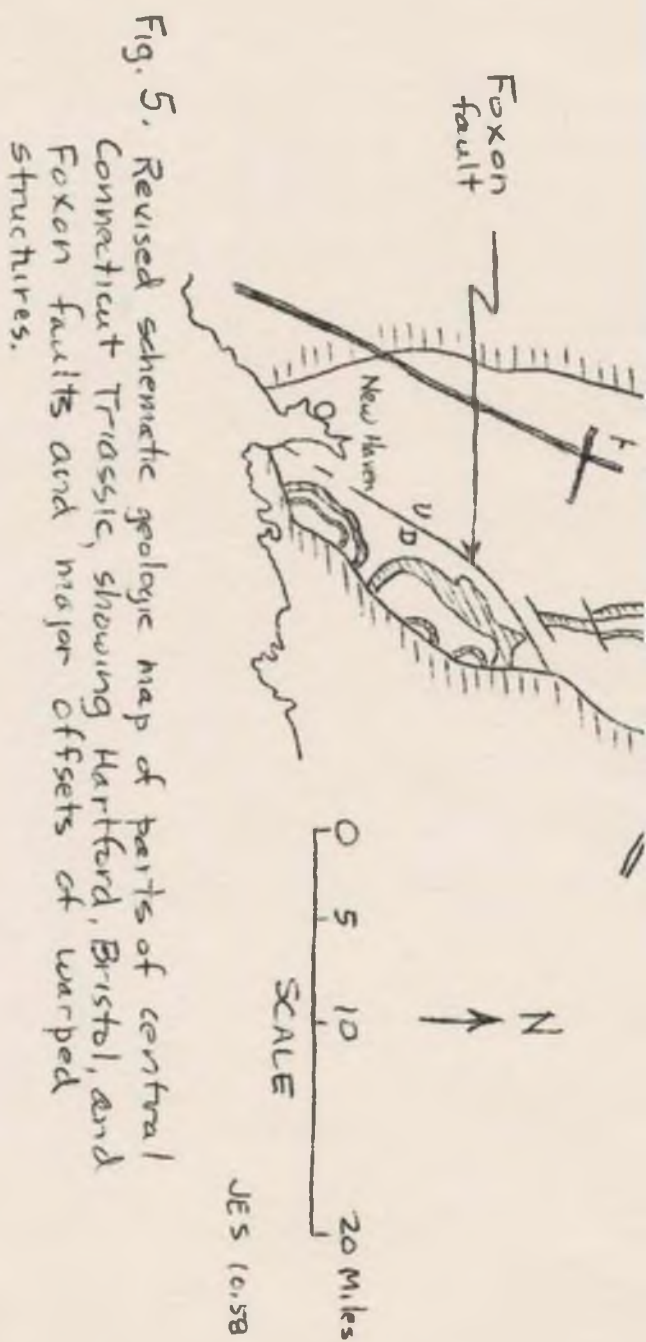 Foxon
fault
New Haven
U
D
N
0 5 10 20 Miles
SCALE
JES 10.58
Fig. 5. Revised schematic geologic map of parts of central
Connecticut Triassic, showing Hartford, Bristol, and
Foxon faults and major offsets of warped
structures.